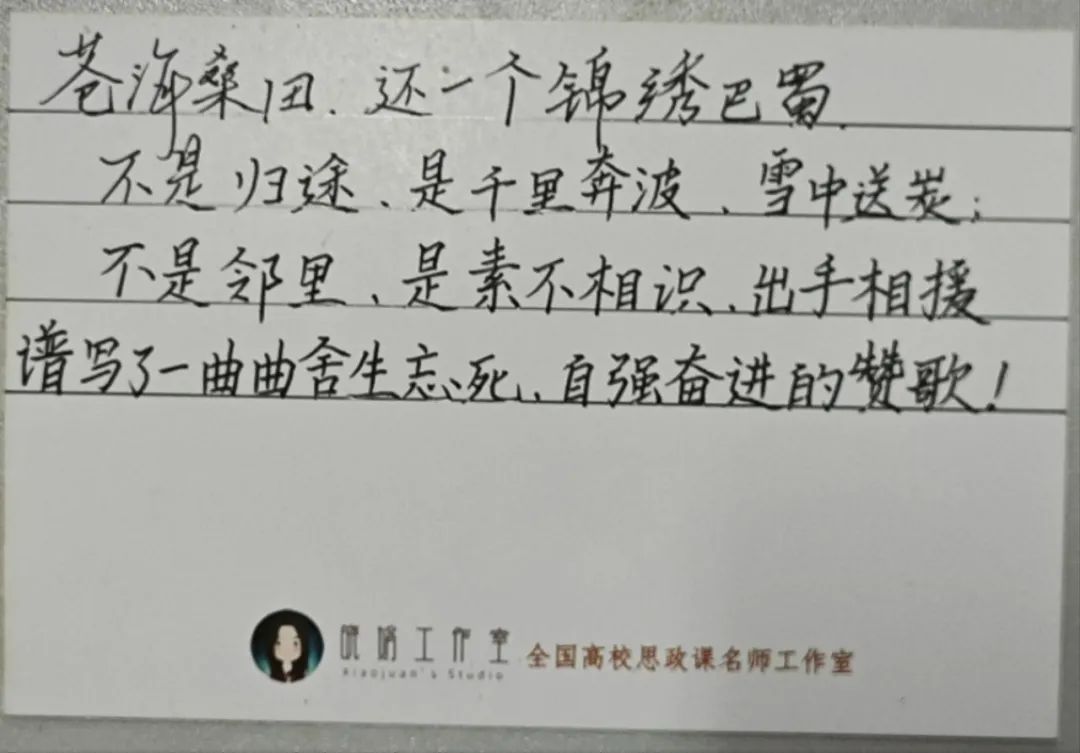 苍海桑田、还一个锦绣巴蜀.
不是归途、是千里奔波、雪中送炭;
不是邻里、是素不相识、出手相援
谱写了一曲曲舍生忘死、自强奋进的赞歌!
工作室
Xiaojuan's Studio
全国高校思政课名师工作室